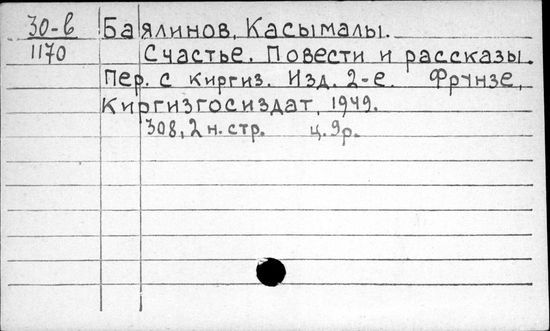 30-в Баялинов, Касымалы.
1170 Счастье. Повести и рассказы.
Пер. с киргиз. Изд. 2-е. Фрунзе,
Киргизгосиздат, 1949.
308, 2 н. стр. ц. 9р.